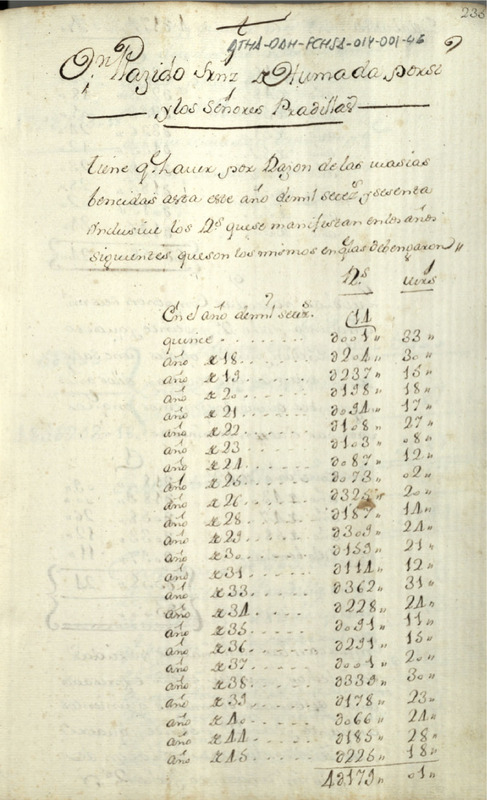 238
ATHA-DAH-FCHSA-014-001-46
Dn Plazido Srnz de Humada porsi
y los Señores Pradillas
tiene qe haver por Razon de las masias
bencidas asta este año demil setez y sesenta
Inclusive los Ds que se manifiestan en los años
siguientes, que son los mismos en qe las debengaron
Ds mrs
En el año demil setez
quince 11 ∂001 33
año de 18 ∂204 30
año de 19 ∂237 15
año de 20 ∂198 18
año de 21 ∂094 17
año de 22 ∂108 27
año de 23 ∂103 08
año de 24 ∂087 12
año de 25 ∂073 02
año de 26 ∂325 20
año de 28 ∂187 14
año de 29 ∂309 24
año de 30 ∂159 21
año de 31 ∂114 12
año de 33 ∂362 31
año de 34 ∂228 24
año de 35 ∂091 11
año de 36 ∂291 15
año de 37 ∂001 20
año de 38 ∂339 30
año de 39 ∂178 23
año de 40 ∂066 24
año de 44 ∂185 28
año de 45 ∂226 18
4∂179 01